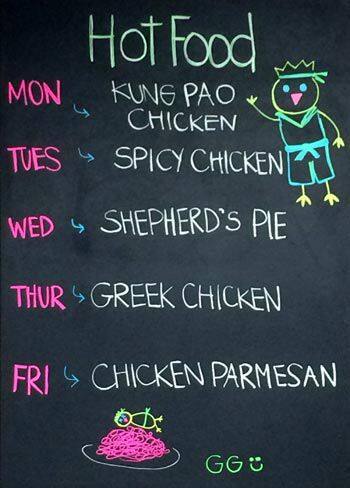 Hot Food
MON KUNG PAO
CHICKEN
TUES SPICY CHICKEN
WED SHEPHERD'S PIE
THUR GREEK CHICKEN
FRI CHICKEN PARMESAN
GG